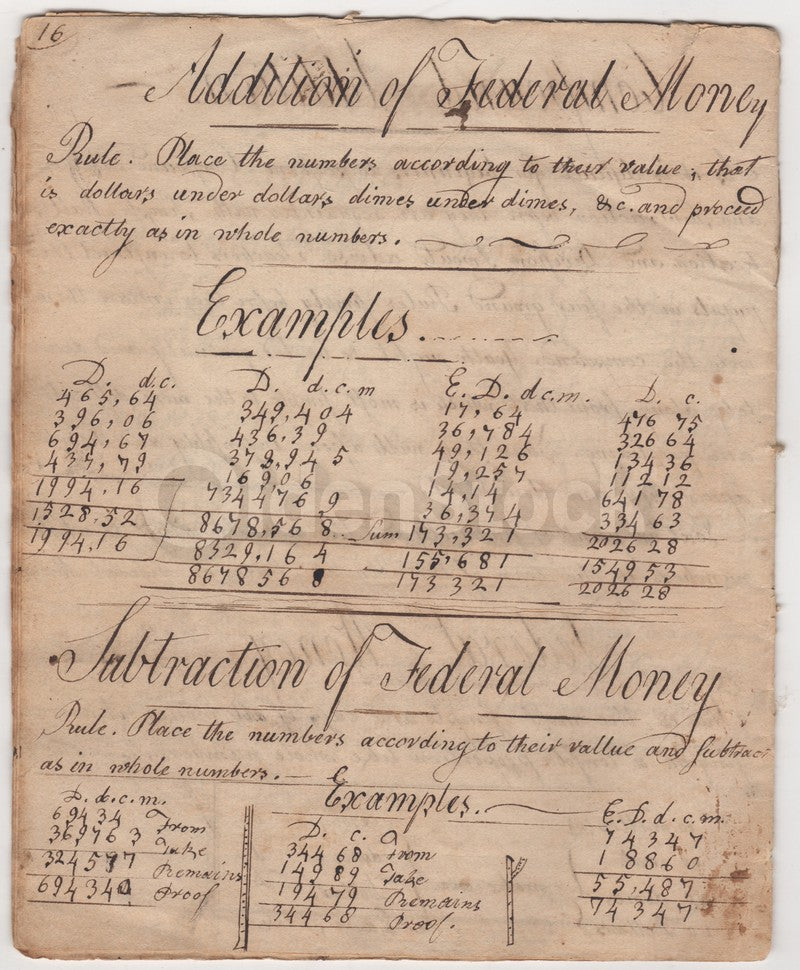 16
Addition of Federal Money
Rule. Place the numbers according to their value, that
is dollars under dollars dimes under dimes, &c. and proceed
exactly as in whole numbers.
Examples.
D. d.c.
465,64
396,06
694,67
437,79
1994,16
1528,52
1994,16
D. d.c.m
349,404
436,39
378,945
169,06
7344769
8678,568
8329,164
8678568
E. D. d c.m.
17,64
36,784
49,126
19,257
14,14
36,374
Sum 173,321
155,681
173321
D. c.
476 75
326 64
134 36
112 12
641 78
334 63
2026 28
1549 53
2026 28
Subtraction of Federal Money
Rule. Place the numbers according to their vallue and Subtract
as in whole numbers.
Examples.
D. d.c.m.
69434 From
369763 Take
324577 Remains
694340 Proof
D. c.
344 68 From
149 89 Take
194 79 Remains
344 68 Proof.
E. D. d. c.m.
74347
18860
55,487
74347